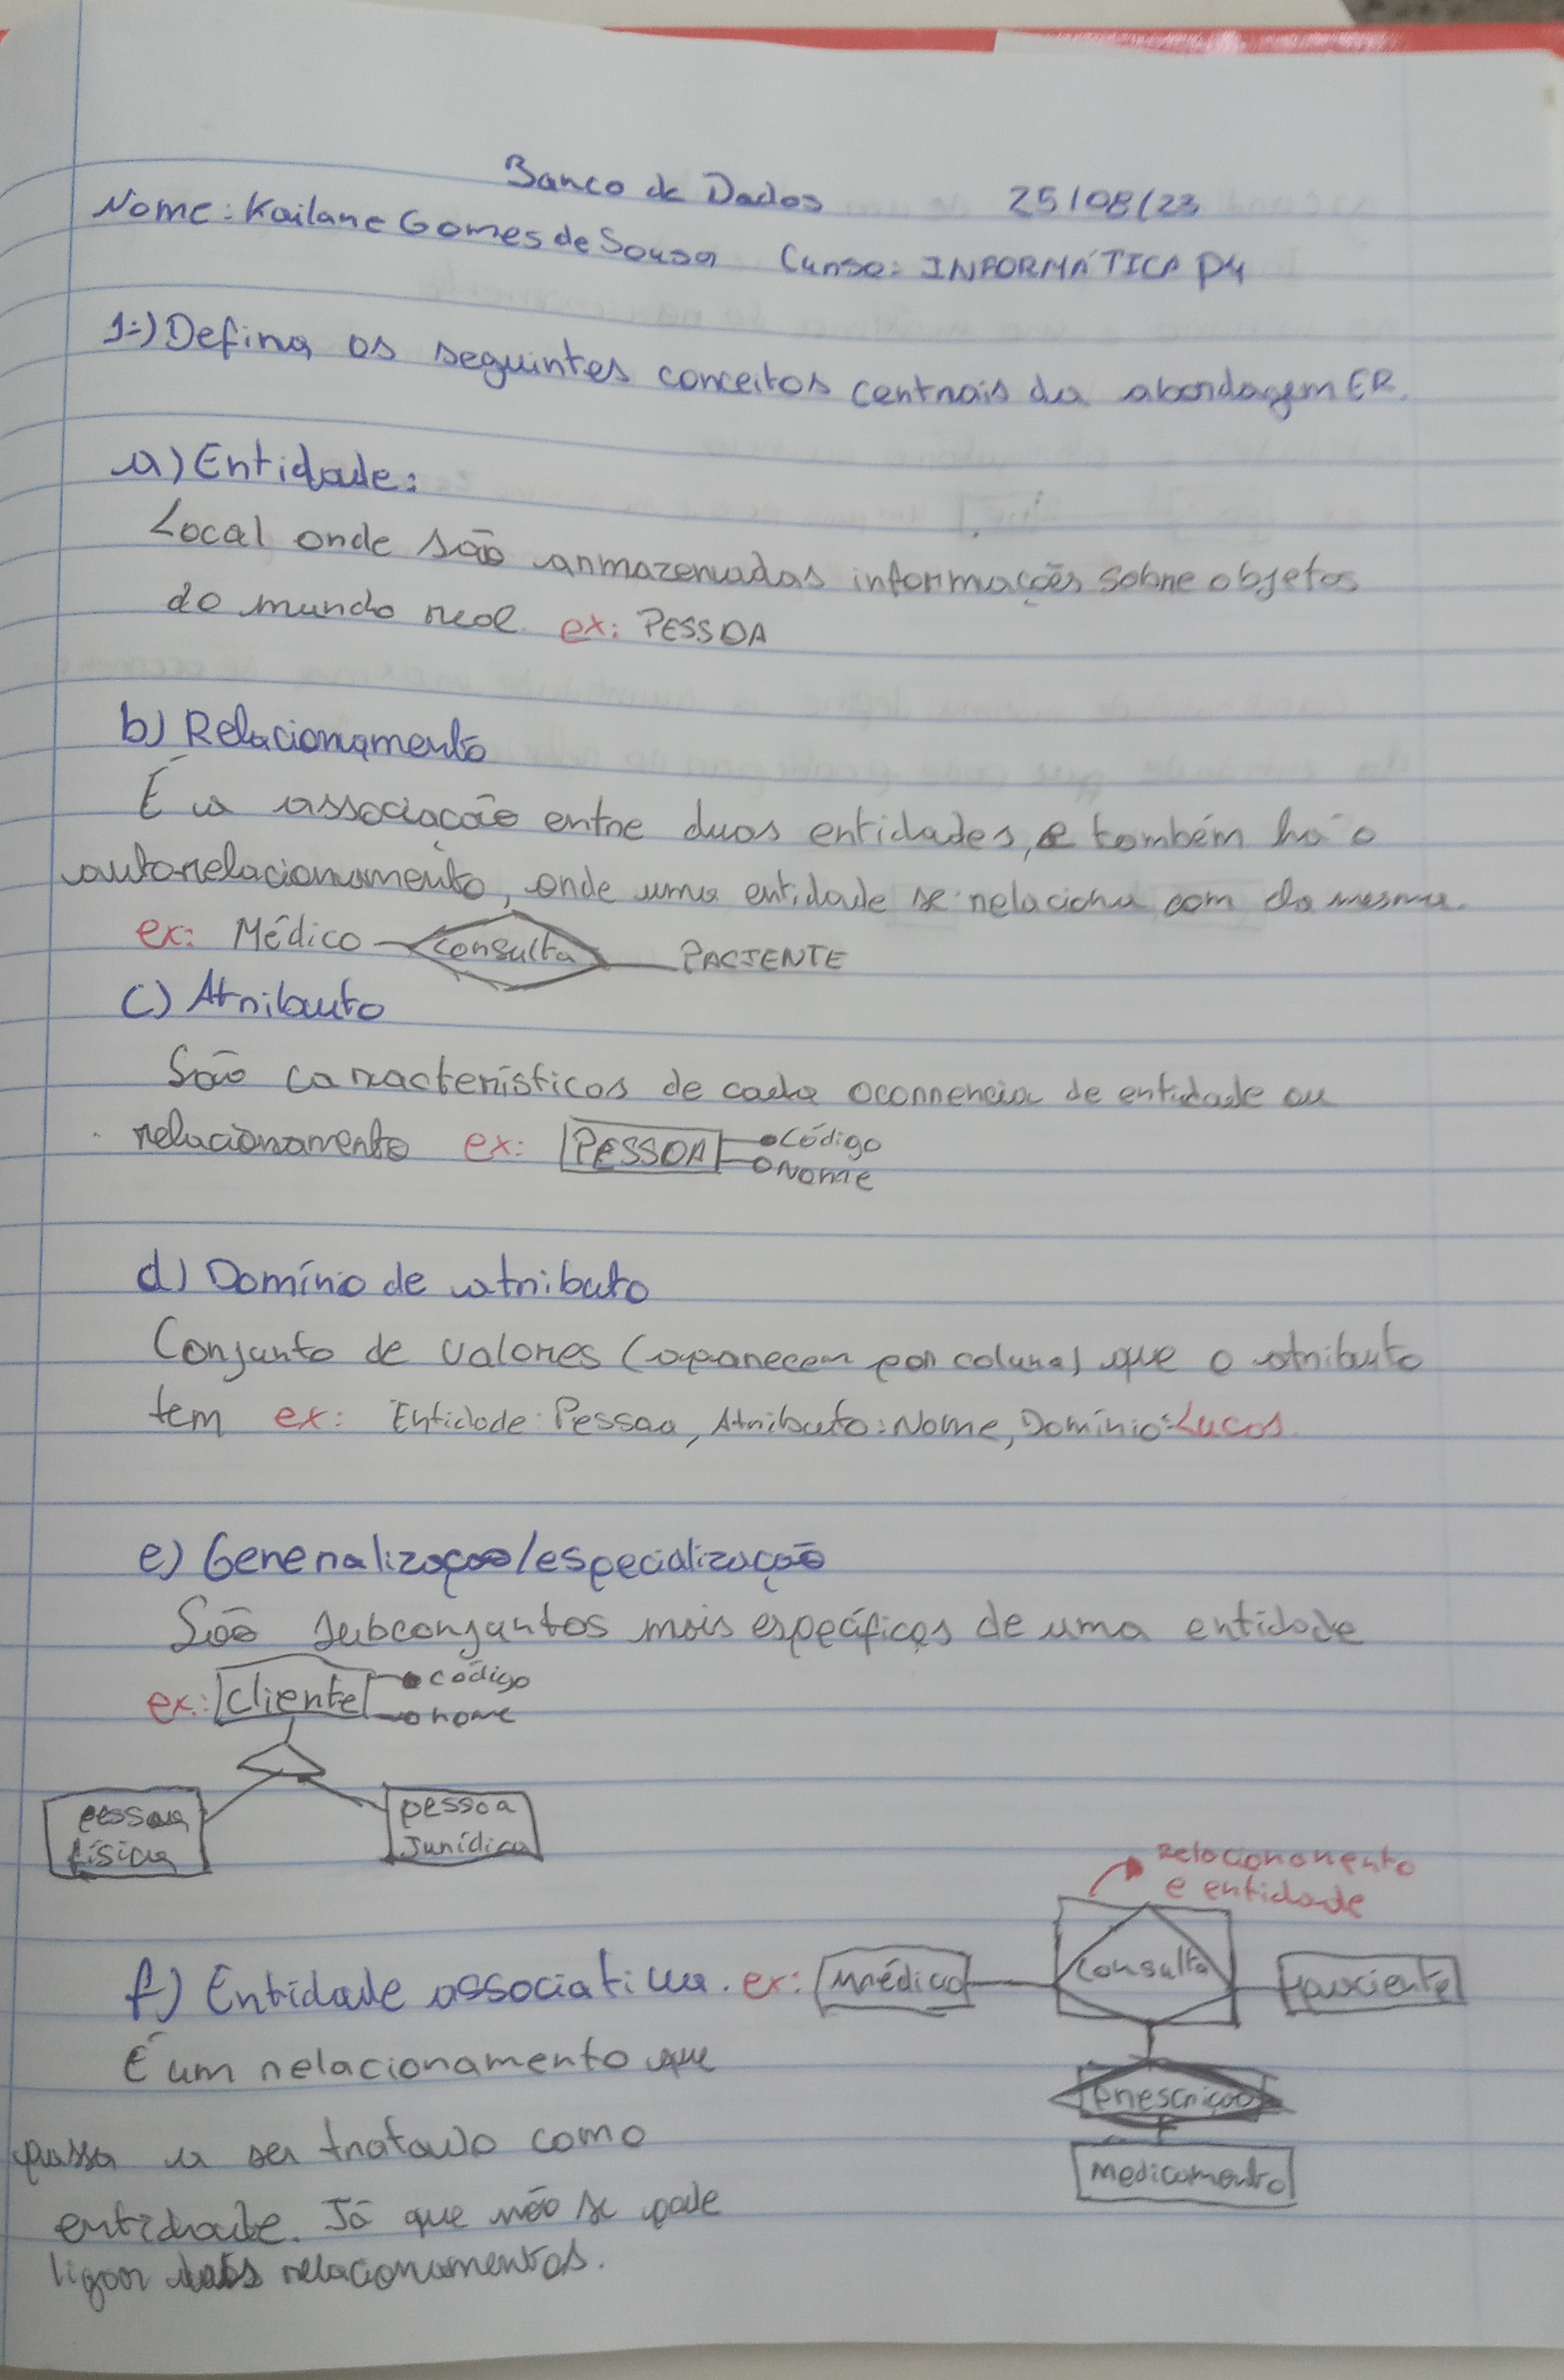 Banco de Dados 25/08/23
Nome: Kailane Gomes de Sousa Curso: INFORMÁTICA P4
1-) Defina os seguintes conceitos centrais da abordagem ER.
a) Entidade:
Local onde são armazenadas informações sobre objetos
do mundo real. ex: PESSOA
b) Relacionamento
É a associação entre duas entidades, e também há o
autorrelacionamento, onde uma entidade se relaciona com ela mesma.
ex: Médico consulta PACIENTE
c) Atributo
São características de cada ocorrencia de entidade ou
relacionamento ex: PESSOA código
nome
d) Domínio de atributo
Conjunto de valores (aparecem por coluna) que o atributo
tem ex: Entidade: Pessoa, Atributo: Nome, Domínio: Lucas.
e) Generalização/especialização
São subconjuntos mais específicos de uma entidade
ex.: cliente código
nome
pessoa física
pessoa Jurídica
Relacionamento
e entidade
f) Entidade associativa. ex: médico consulta paciente
É um relacionamento que
prescrição
passa a ser tratado como
medicamento
entidade. Já que não se pode
ligar dois relacionamentos.